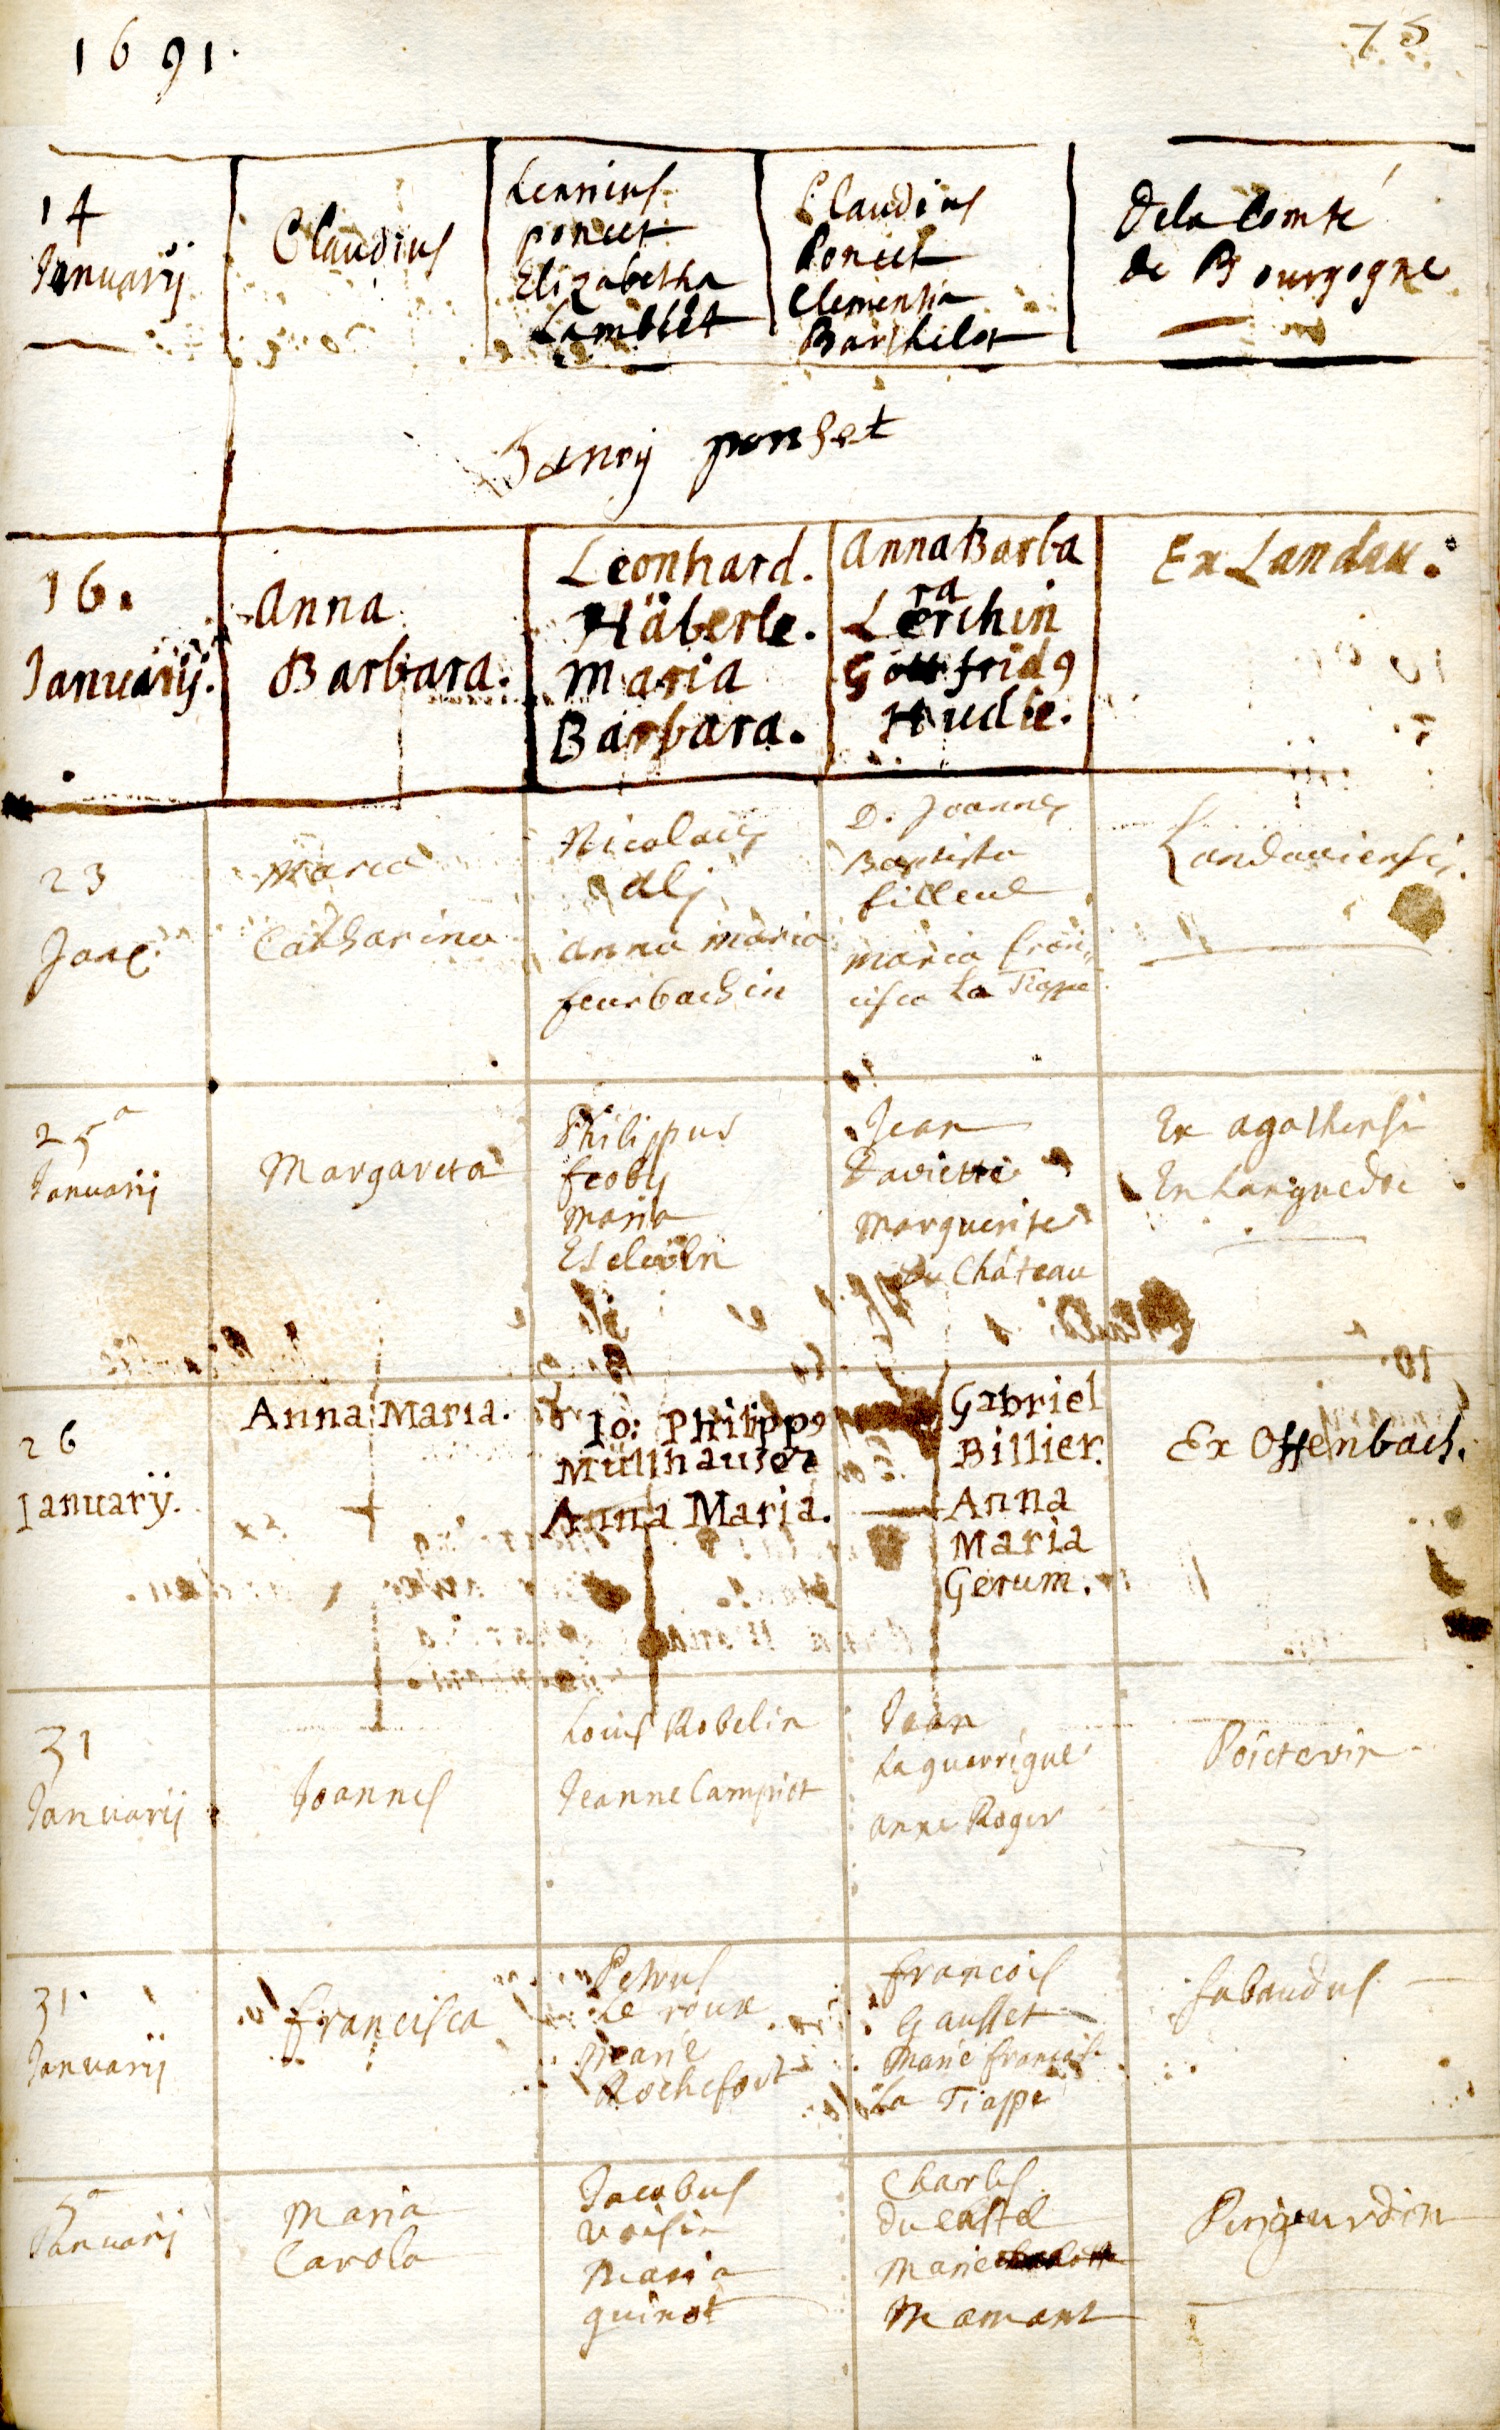 1691.
75
14
Januarij
Claudius
poncet
Elizabetha
Lamblet
Claudius
Poncet
Clementia
Barthelot
De la Comté
de Bourgogne
Henrij ponset
16.
Januarij.
Anna
Barbara.
Leonhard.
Häberle.
Maria
Barbara.
Anna Barba
ra
Lerchin
Gottfridꝰ
Hudle.
Ex Landau.
23
Maria
Catharina
Nicolaus
Alj
anna maria
feurbachin
D. Joannes
Baptista
filleul
maria fran,
cisca La Trappe
Landaviensis.
25a
Januarij
Margareta
Philippus
feoby
Maria
Jean
Daviette
Marguerite
Du Château
Ex agathensi
En Languedoc
26
Ianuarÿ.
Anna Maria.
Io: Philippꝰ
Müllhauser
Anna Maria.
Gabriel
Billier.
Anna
Maria
Gerum.
Ex Offenbach.
31
Januarij
Joannes
Louis Robelin
Jeanne Campiot
Jean
Laguerrigue
anne Roger
Poictevin
31
Januarij
francisca
Petrus
Le roux
Marie
Rochefort
francois
Gausset
Marie francoise
La Trappe
Sabaudus
5a
Januarij
Maria
Carola
Jacobus
Voisin
Maria
quinot
Charles
Du Castel
Marie
Mamant
Perigourdin